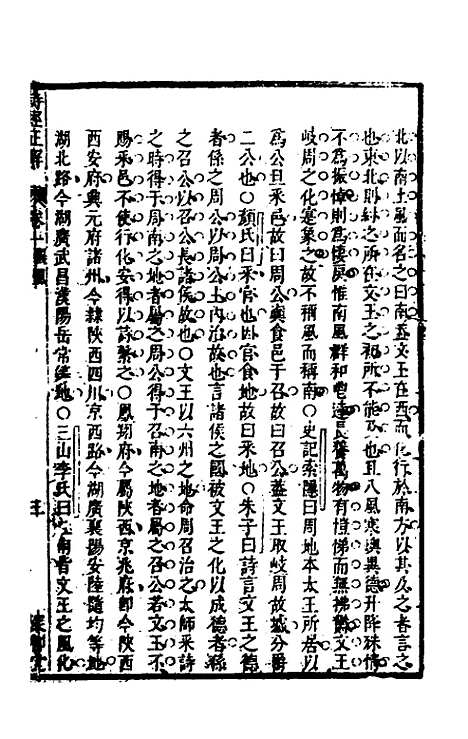 北以南土風而名之曰南蓋文王在西而化行於南方以其及之者言之
也東北則紂之所在文王之初所不能及也且八風寒燠異德升降殊情
不爲振悼則爲悽戾惟南風群和長養萬物有愷悌而無拂鬱文王
岐周之化寔象之故不稱風而稱南○史記索隱曰周地本太王所居以
爲公旦采邑故曰周公奭食邑于召故曰召公蓋文王取岐周故墟分爵
二公也○顏氏曰采官也因官食地故曰采地○朱子曰詩言文王之德
者係之周公以周公主內治故也言諸侯之國被文王之化以成德者係
之召公以召公長諸侯故也○文王以六州之地命周召治之太師采詩
之時得于周南之地者屬之周公得于召南之地者屬之召公若文王不
賜采邑不使行化安得以詩繫之○鳳翔府今屬陝西京兆府卽今陝西
西安府興元府諸州今隸陝西四川京西路今湖廣襄陽安陸隨均等地
湖北路今湖廣武昌漢陽岳常等地○三山李氏曰南者文王之風化
詩經正解